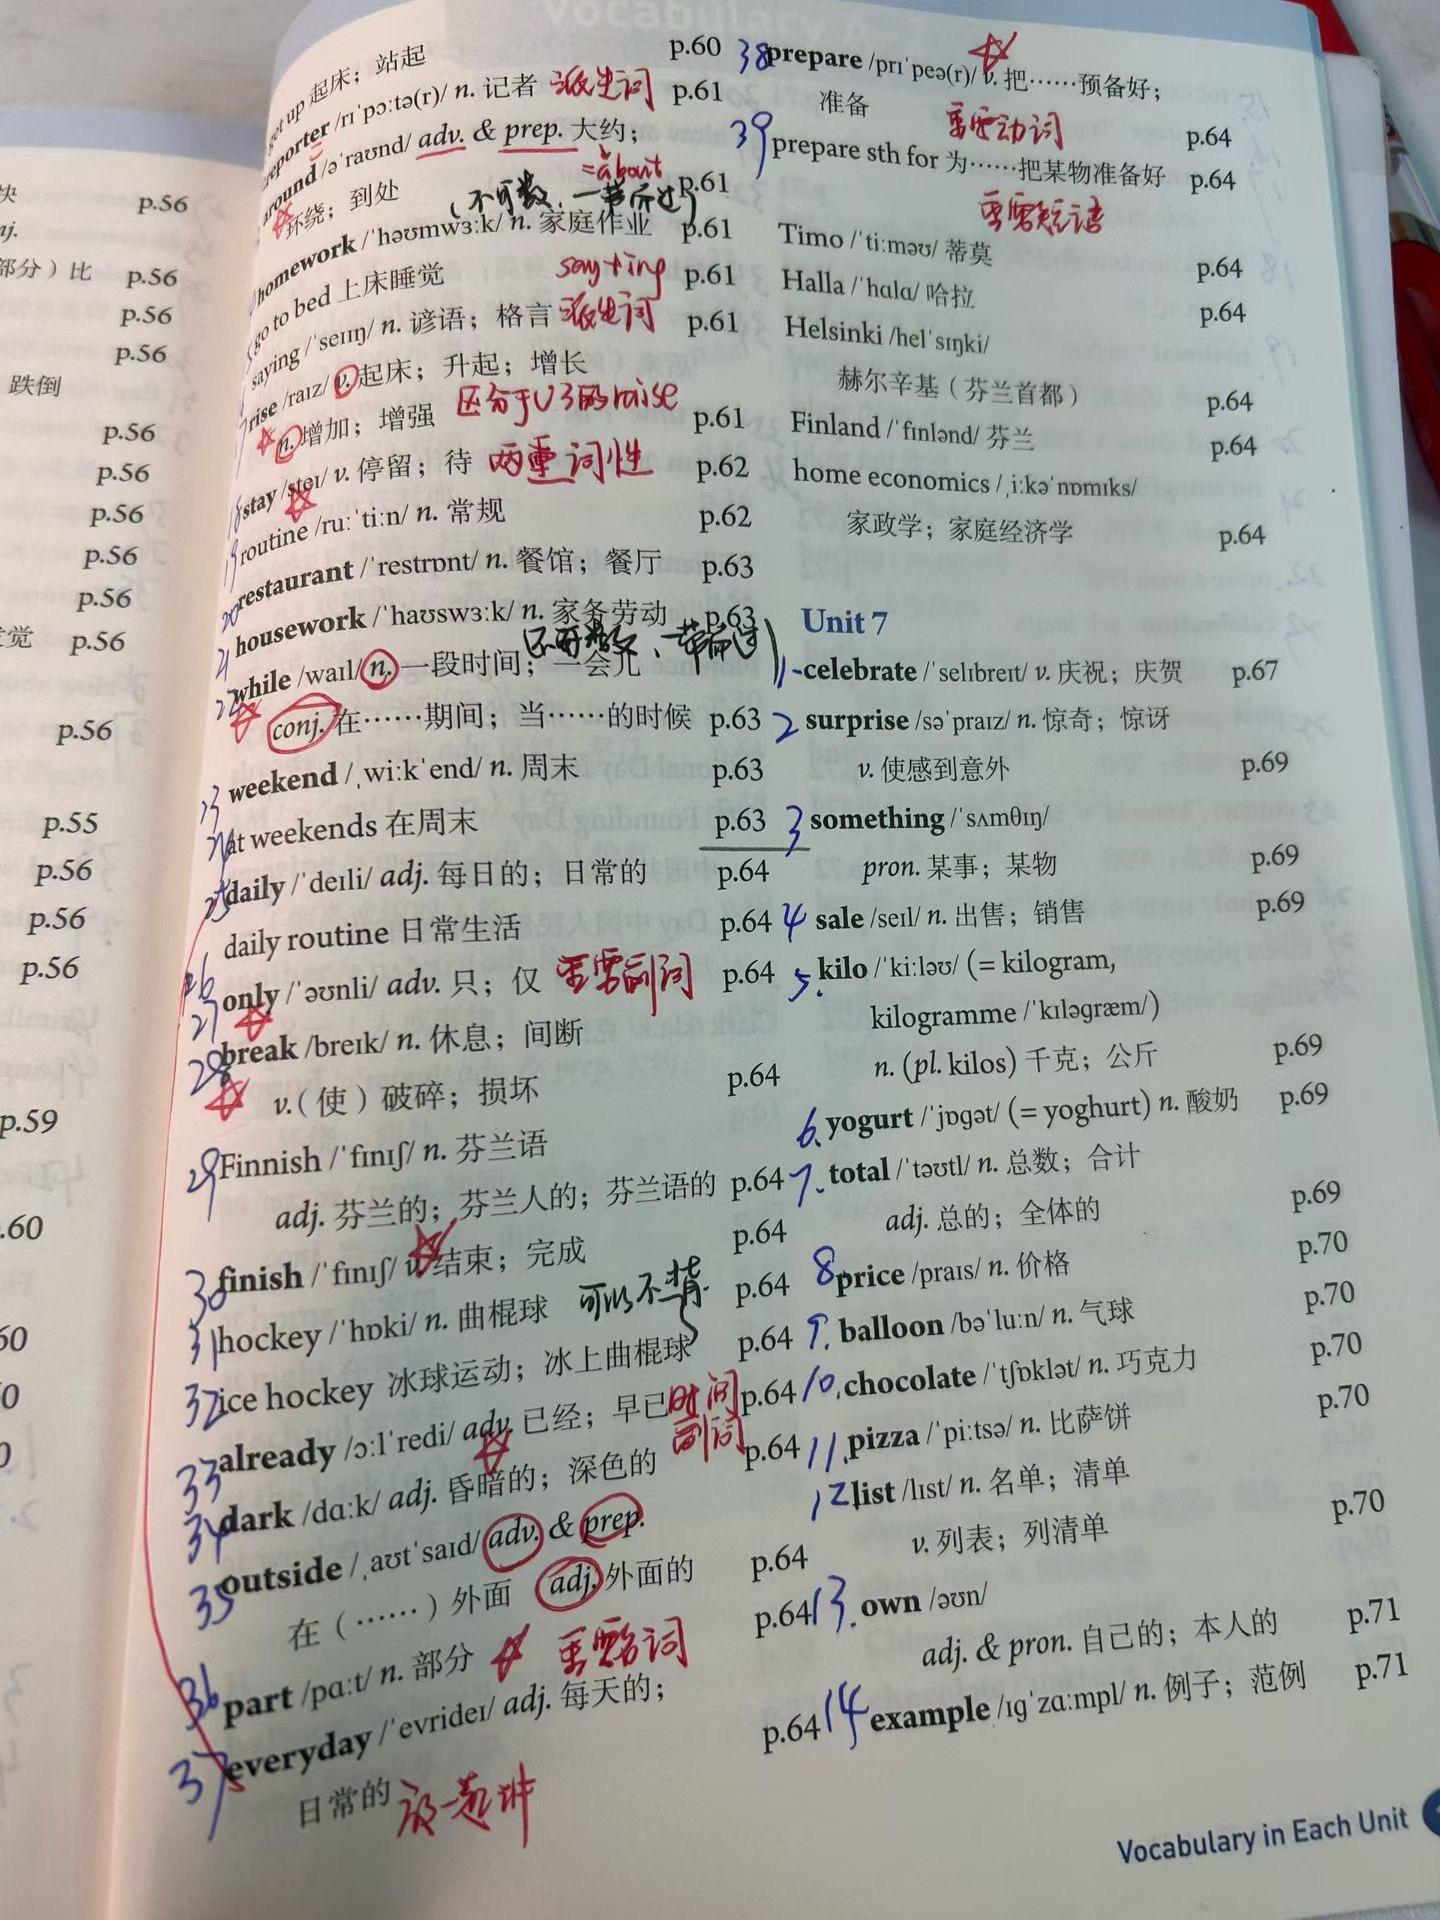 快
p.56
nj.
部分）比
p.56
p.56
p.56
跌倒
p.56
p.56
p.56
p.56
p.56
p.56
p.56
p.55
p.56
p.56
p.56
p.59
p.60
get up 起床；站起 p.60
reporter /rɪˈpɔːtə(r)/ n. 记者 派生词 p.61
around /əˈraʊnd/ adv. & prep. 大约；
=about
环绕；到处 p.61
（不可数，一节所过）
homework /ˈhəʊmwɜːk/ n. 家庭作业 p.61
go to bed 上床睡觉 p.61
say+ing
saying /ˈseɪɪŋ/ n. 谚语；格言 派生词 p.61
rise /raɪz/ v. 起床；升起；增长
n. 增加；增强 p.61
区分于V3的raise
18 stay /steɪ/ v. 停留；待 两重词性 p.62
19 routine /ruːˈtiːn/ n. 常规 p.62
20 restaurant /ˈrestrɒnt/ n. 餐馆；餐厅 p.63
21 housework /ˈhaʊswɜːk/ n. 家务劳动 p.63
22 while /waɪl/ n. 一段时间；一会儿
conj. 在……期间；当……的时候 p.63
23 weekend /ˌwiːkˈend/ n. 周末 p.63
24 at weekends 在周末 p.63
25 daily /ˈdeɪli/ adj. 每日的；日常的 p.64
26 daily routine 日常生活 p.64
27 only /ˈəʊnli/ adv. 只；仅 重要副词 p.64
28 break /breɪk/ n. 休息；间断
v.（使）破碎；损坏 p.64
29 Finnish /ˈfɪnɪʃ/ n. 芬兰语
adj. 芬兰的；芬兰人的；芬兰语的 p.64
30 finish /ˈfɪnɪʃ/ v. 结束；完成 p.64
31 hockey /ˈhɒki/ n. 曲棍球 可以不背 p.64
32 ice hockey 冰球运动；冰上曲棍球 p.64
33 already /ɔːlˈredi/ adv. 已经；早已 时间副词 p.64
34 dark /dɑːk/ adj. 昏暗的；深色的 p.64
35 outside /ˌaʊtˈsaɪd/ adv. & prep.
在（……）外面 adj. 外面的 p.64
36 part /pɑːt/ n. 部分 重要名词 p.64
37 everyday /ˈevrideɪ/ adj. 每天的；
日常的 p.64
放一起讲
38 prepare /prɪˈpeə(r)/ v. 把……预备好；
准备 重要动词 p.64
39 prepare sth for 为……把某物准备好 p.64
重要短语
Timo /ˈtiːməʊ/ 蒂莫 p.64
Halla /ˈhɑlɑ/ 哈拉 p.64
Helsinki /helˈsɪŋki/
赫尔辛基（芬兰首都） p.64
Finland /ˈfɪnlənd/ 芬兰 p.64
home economics /ˌiːkəˈnɒmɪks/
家政学；家庭经济学 p.64
Unit 7
1 celebrate /ˈselɪbreɪt/ v. 庆祝；庆贺 p.67
2 surprise /səˈpraɪz/ n. 惊奇；惊讶
v. 使感到意外 p.69
3 something /ˈsʌmθɪŋ/
pron. 某事；某物 p.69
4 sale /seɪl/ n. 出售；销售 p.69
5. kilo /ˈkiːləʊ/ (= kilogram,
kilogramme /ˈkɪləɡræm/)
n. (pl. kilos) 千克；公斤 p.69
6. yogurt /ˈjɒɡət/ (= yoghurt) n. 酸奶 p.69
7. total /ˈtəʊtl/ n. 总数；合计
adj. 总的；全体的 p.69
8 price /praɪs/ n. 价格 p.70
9. balloon /bəˈluːn/ n. 气球 p.70
10. chocolate /ˈtʃɒklət/ n. 巧克力 p.70
11. pizza /ˈpiːtsə/ n. 比萨饼 p.70
12 list /lɪst/ n. 名单；清单
v. 列表；列清单 p.70
13. own /əʊn/
adj. & pron. 自己的；本人的 p.71
14 example /ɪɡˈzɑːmpl/ n. 例子；范例 p.71
Vocabulary in Each Unit